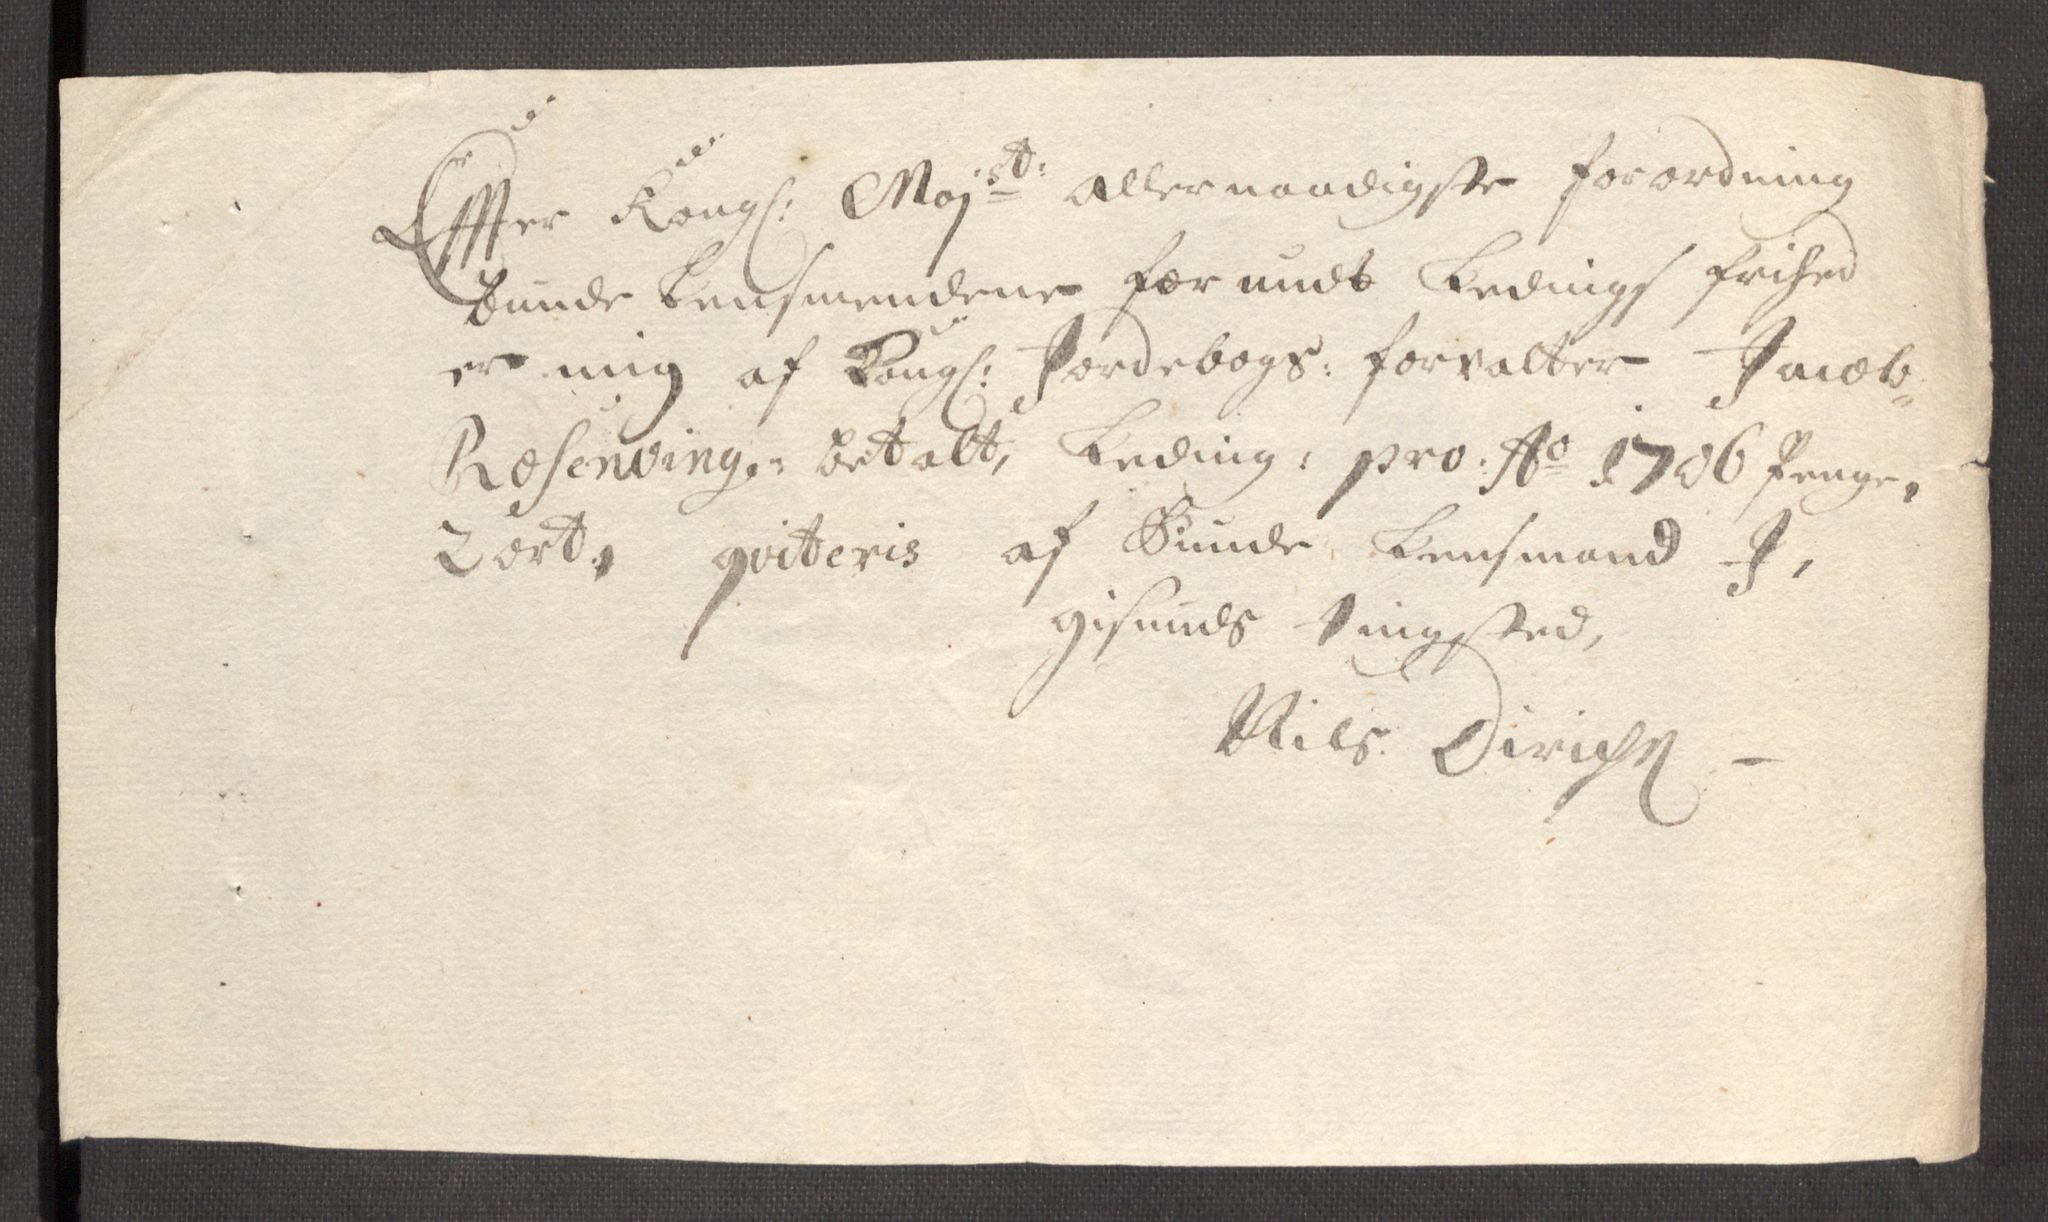 Effter Kongl: Majst: allernaadigste forordning
bunde Lensmendene forundt Ledings frihed
er mig af Kongl: Jordebogs: forvalter Jacob
Rosenving: betalt, Leding: pro: Ao 1706 Penge,
2 ort, qviteris af Bunde Lensmand J,
gisunds tingsted,
Nils Dirichs